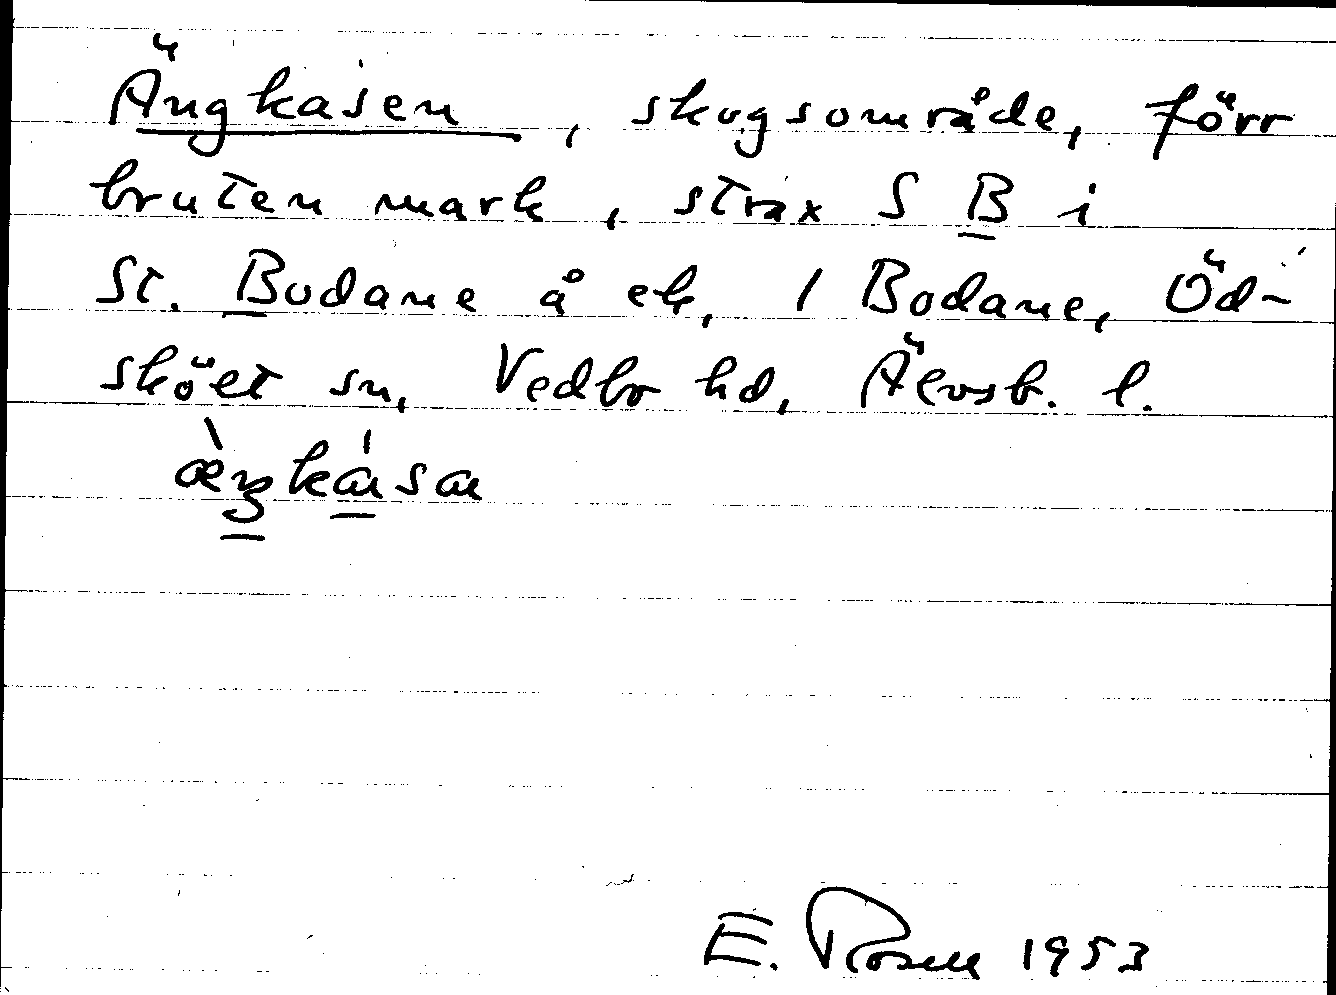 Ängkasen, skogsområde, förr
bruten mark, strax S B i
St. Bodane å ek, 1 Bodane, Öd-
sköet sn, Vedbo hd, Älvsb. l.
E. Rosell 1953